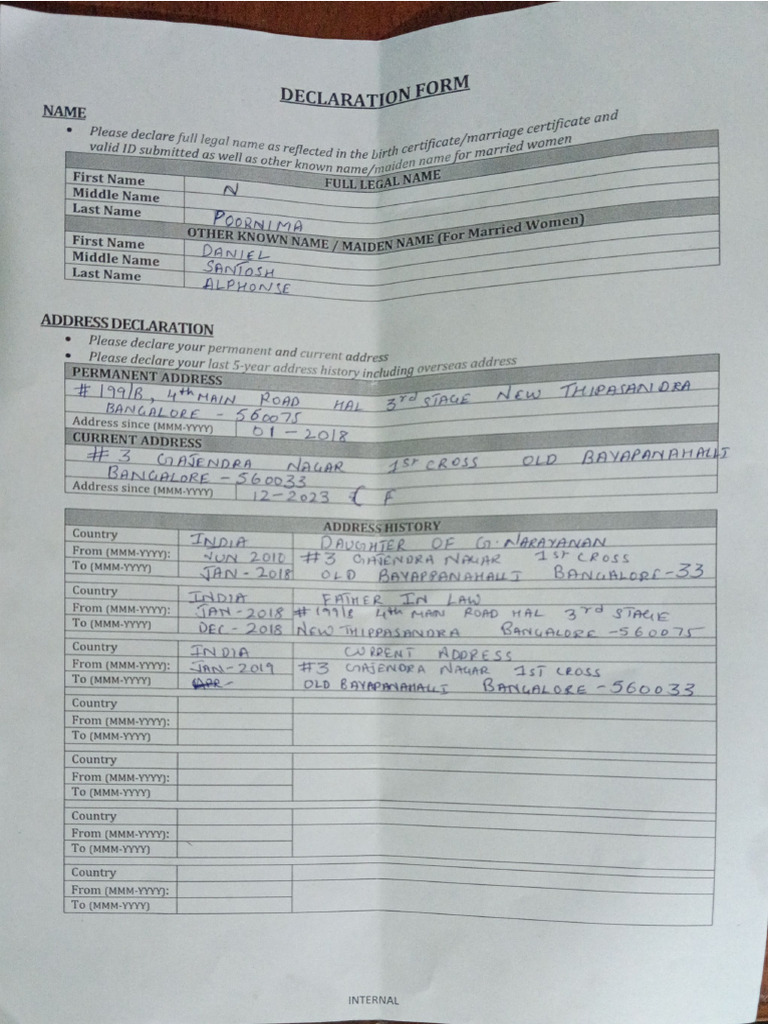 DECLARATION FORM
NAME
• Please declare full legal name as reflected in the birth certificate/marriage certificate and
valid ID submitted as well as other known name/maiden name for married women
FULL LEGAL NAME
First Name N
Middle Name
Last Name POORNIMA
OTHER KNOWN NAME / MAIDEN NAME (For Married Women)
First Name DANIEL
Middle Name SANTOSH
Last Name ALPHONSE
ADDRESS DECLARATION
• Please declare your permanent and current address
• Please declare your last 5-year address history including overseas address
PERMANENT ADDRESS
# 199/B, 4th MAIN ROAD HAL 3rd STAGE NEW THIPASANDRA
BANGALORE - 560075
Address since (MMM-YYYY) 01 - 2018
CURRENT ADDRESS
# 3 GAJENDRA NAGAR 1st CROSS OLD BAYAPANAHALLI
BANGALORE - 560033
Address since (MMM-YYYY) 12-2023 ( F
ADDRESS HISTORY
Country INDIA DAUGHTER OF G. NARAYANAN
From (MMM-YYYY): JUN 2010 #3 GAJENDRA NAGAR 1st CROSS
To (MMM-YYYY) JAN - 2018 OLD BAYAPPANAHALLI BANGALORE-33
Country INDIA FATHER IN LAW
From (MMM-YYYY): JAN - 2018 # 199/B 4th MAIN ROAD HAL 3rd STAGE
To (MMM-YYYY) DEC - 2018 NEW THIPPASANDRA BANGALORE - 560075
Country INDIA CURRENT ADDRESS
From (MMM-YYYY): JAN - 2019 #3 GAJENDRA NAGAR 1ST CROSS
To (MMM-YYYY) OLD BAYAPANAHALLI BANGALORE - 560033
Country
From (MMM-YYYY):
To (MMM-YYYY)
Country
From (MMM-YYYY):
To (MMM-YYYY)
Country
From (MMM-YYYY):
To (MMM-YYYY)
Country
From (MMM-YYYY):
To (MMM-YYYY)
INTERNAL